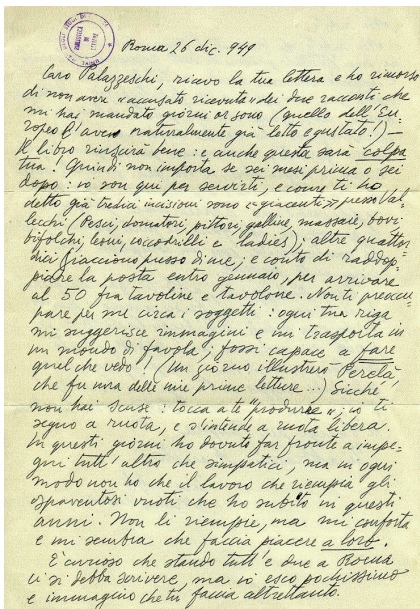 Roma 26 dic. 949
Caro Palazzeschi, ricevo la tua lettera e ho rimorso
di non avere "accusato ricevuta" dei due racconti che
mi hai mandato giorni or sono (quello dell'Eu-
ropeo l'avevo naturalmente già letto e gustato!) —
Il libro riuscirà bene: e anche questa sarà colpa
tua! Quindi non importa se sei mesi prima o sei
dopo: io son qui per servirti, e come ti ho
detto già tredici incisioni sono "giacenti" presso Val-
lecchi (Pesci, domatori, pittori, galline, massaie, bovi
bifolchi, leoni, coccodrilli e ladies); altre quattor
dici giacciono presso di me; e conto di raddop-
piare la posta entro gennaio, per arrivare
al 50 fra tavoline e tavolone. Non ti preoccu
pare per me circa i soggetti: ogni tua riga
mi suggerisce immagini e mi trasporta in
un mondo di favola; fossi capace a fare
quel che vedo! (Un giorno illustrerò Perelà,
che fu una delle mie prime letture...) Sicché
non hai scuse: tocca a te "produrre"; io ti
seguo a ruota, e s'intende a ruota libera.
In questi giorni ho dovuto far fronte a impe-
gni tutt'altro che simpatici, ma in ogni
modo non ho che il lavoro che riempia gli
spaventosi vuoti che ho subito in questi
anni. Non li riempie, ma mi conforta
e mi sembra che faccia piacere a loro.
È curioso che stando tutt'e due a Roma
ci si debba scrivere, ma io esco pochissimo
e immagino che tu faccia altrettanto.